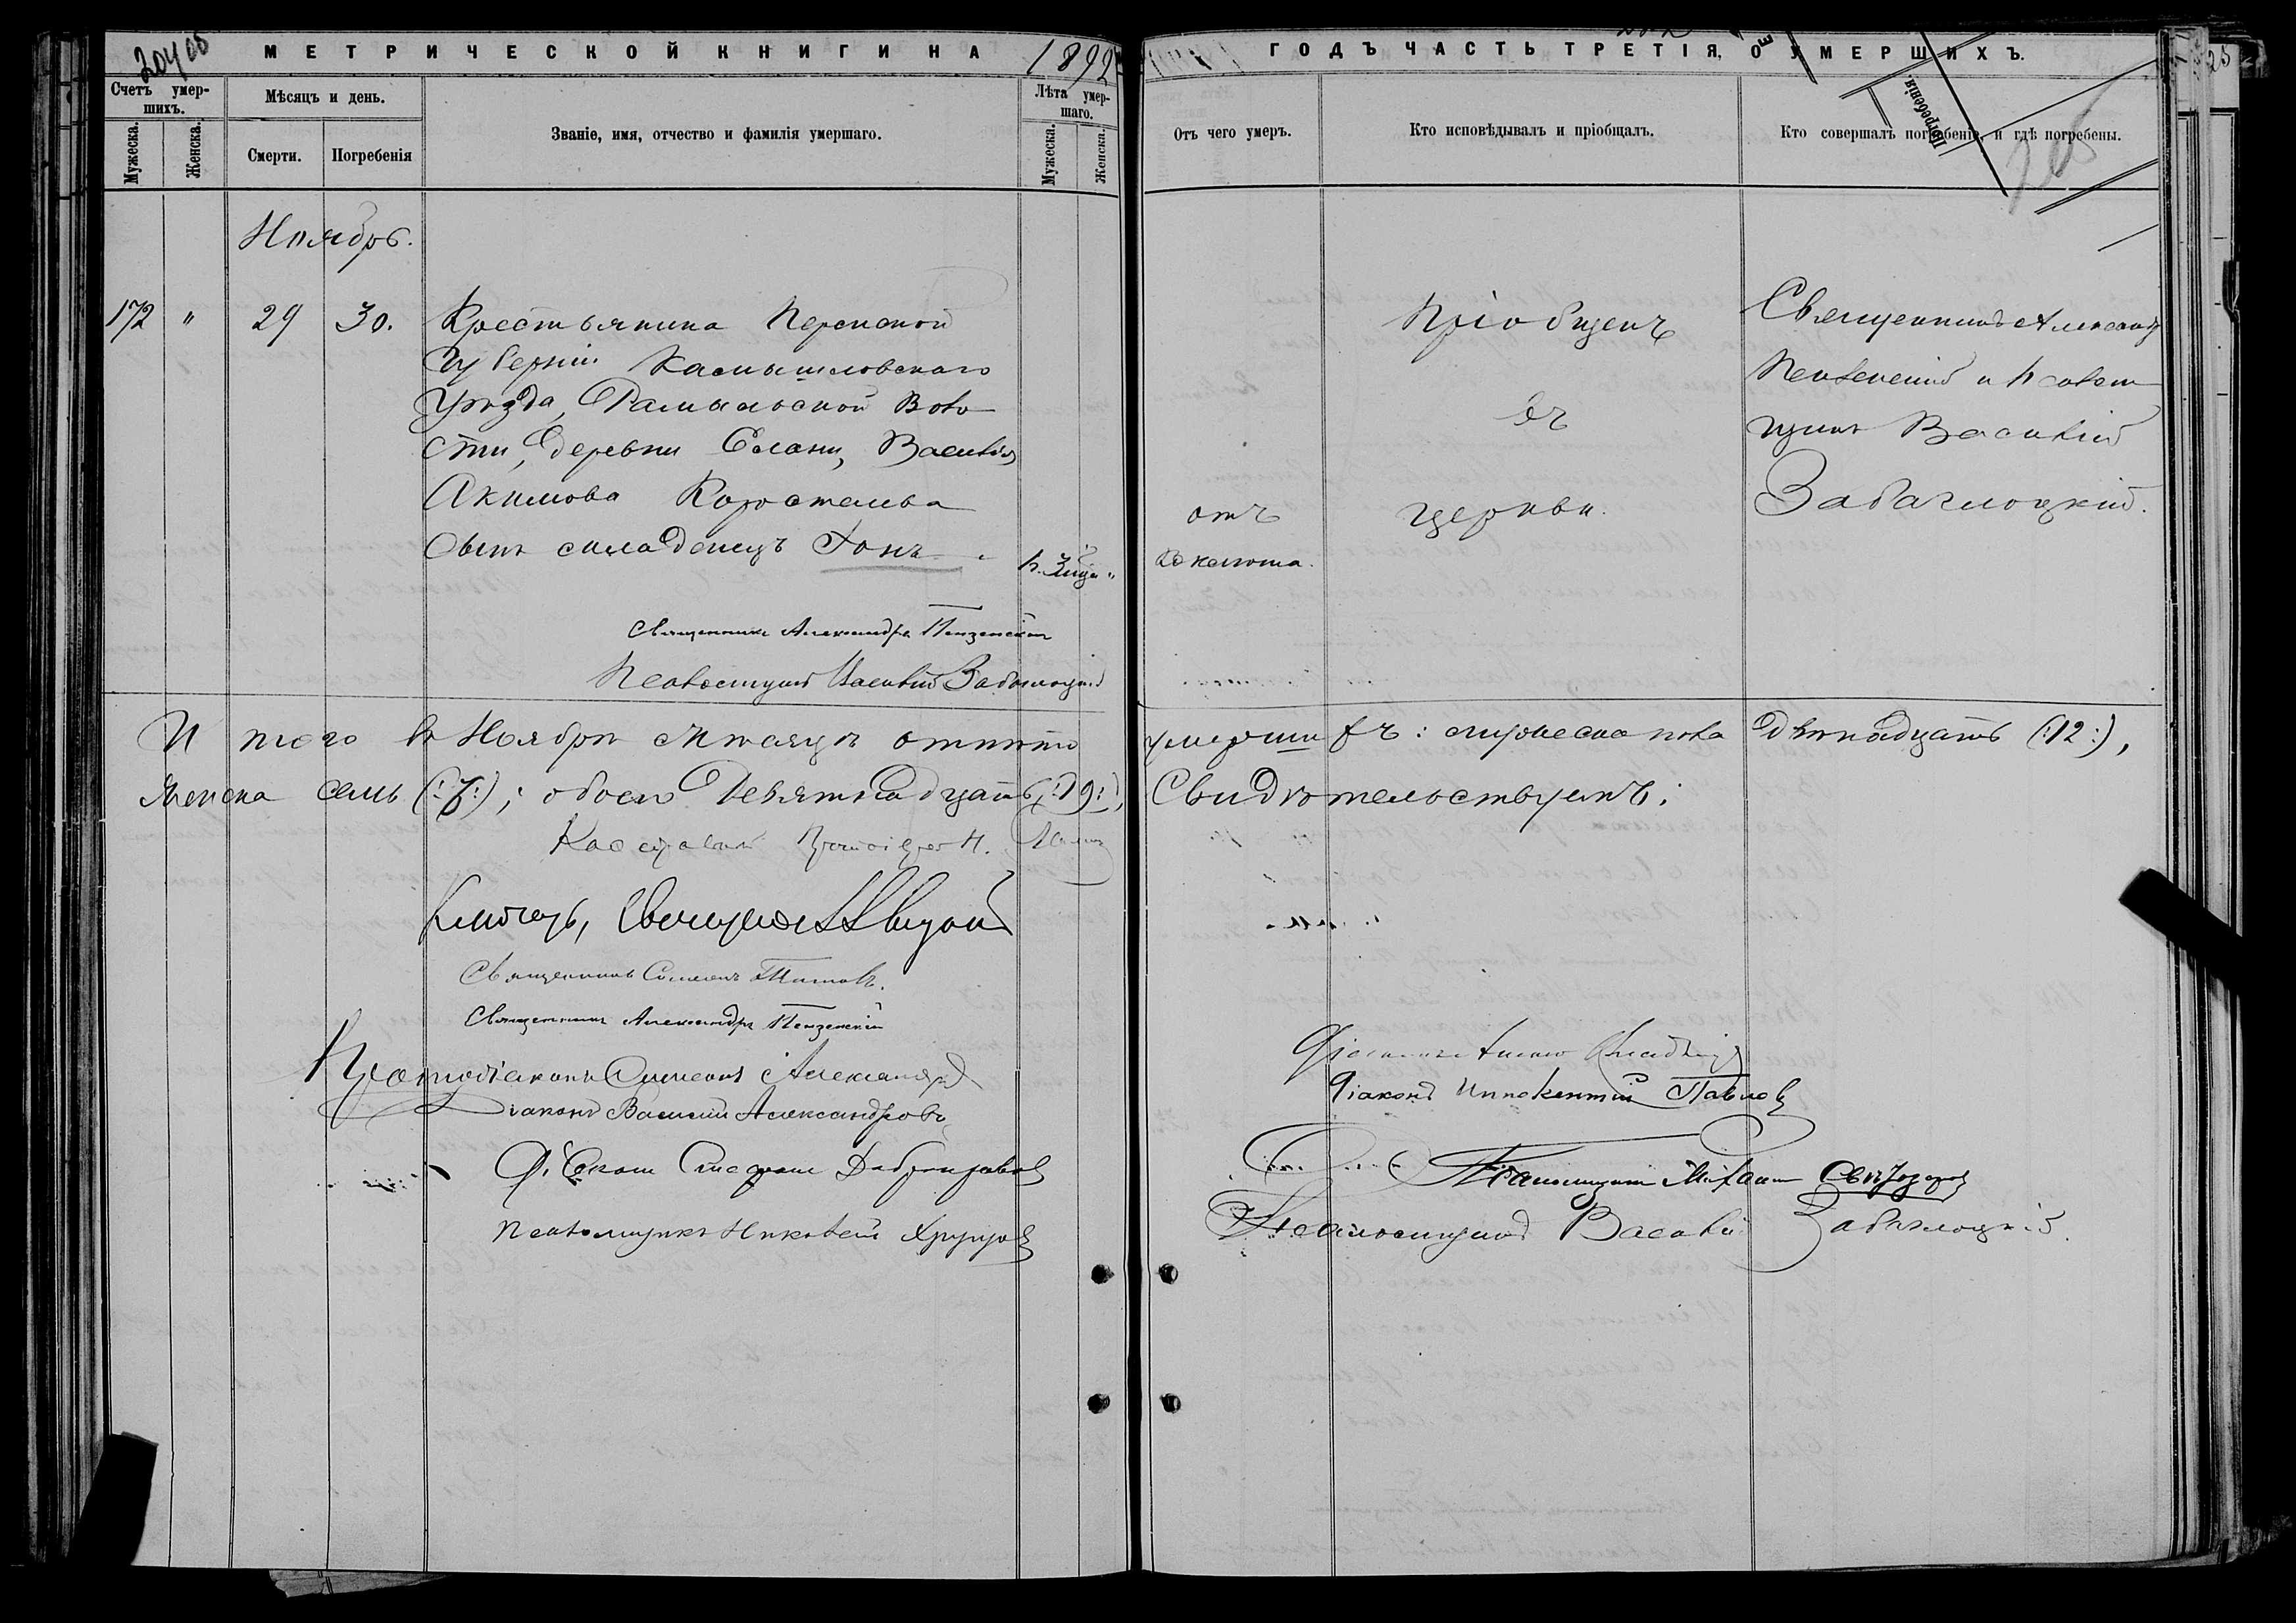 МЕТРИЧЕСКОЙ КНИГИ НА 1892 ГОДЪ ЧАСТЬ ТРЕТІЯ, О УМЕРШИХЪ.
Счетъ умер-
шихъ.
Мужеска.
Женска.
Мѣсяцъ и день.
Смерти.
Погребенія
Званіе, имя, отчество и фамилія умершаго.
Лѣта умер-
шаго.
Мужеска.
Женска.
Отъ чего умеръ.
Кто исповѣдывалъ и пріобщалъ.
Кто совершалъ погребеніе, и гдѣ погребены.
Погребенія.
Ноябрь.
172 " 29 30.
Крестьянина Пермской
Губерніи Камышловскаго
Уѣзда, Воло
сти, деревни Елани, Василія
Акимова Коростелева
сынъ младенецъ
отъ
Пріобщенъ
въ
церкви.
Священникъ Александръ
Пензенскій и псалом
щикъ Василій
Заблоцкій.
Священникъ Александръ Пензенскій
Псаломщикъ Василій
Итого въ Ноябрѣ мѣсяцѣ отпѣто умершихъ: мужеска пола двѣнадцать (:12:),
женска семь (:7:); обоего девятнадцать (:19:), Свидѣтельствуемъ:
Ключарь, Священникъ
Священникъ Симеонъ Титовъ.
Священникъ Александръ Пензенскій
Протодіаконъ Симеонъ Александр
Діаконъ Василій Александровъ
Діаконъ Стефанъ
Псаломщикъ Николай
Діаконъ Иннокентій Павлов
Псаломщикъ Михаилъ
Псаломщикъ Василій Заблоцкій.